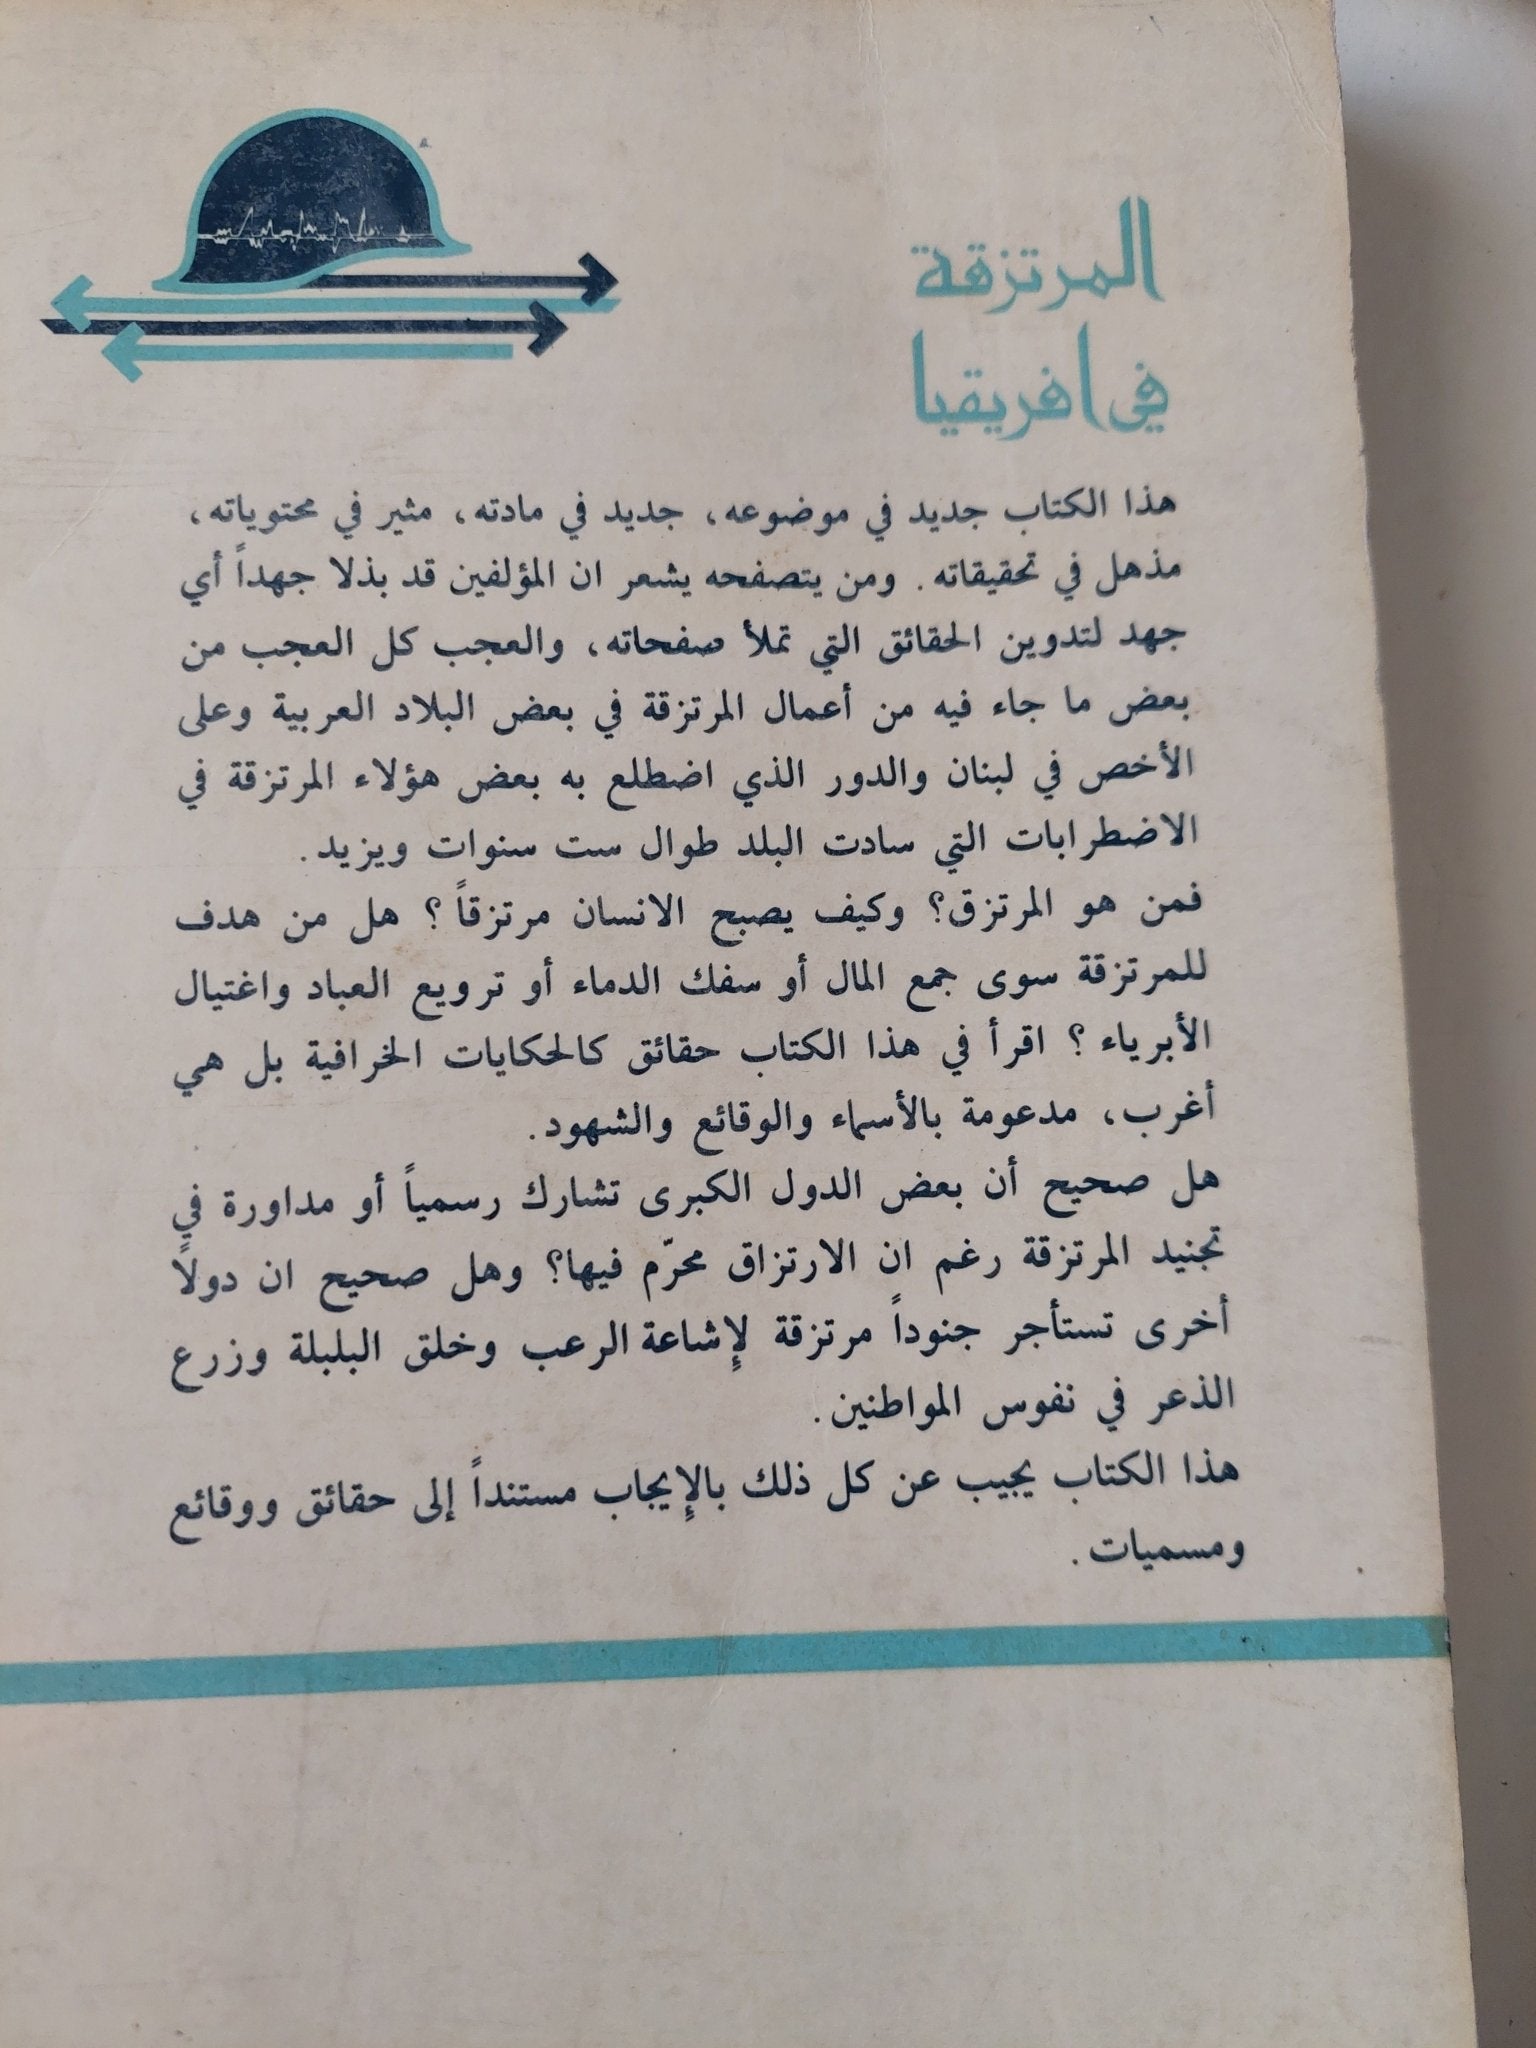 المرتزقة
في افريقيا
هذا الكتاب جديد في موضوعه، جديد في مادته، مثير في محتوياته،
مذهل في تحقيقاته. ومن يتصفحه يشعر ان المؤلفين قد بذلا جهداً أي
جهد لتدوين الحقائق التي تملأ صفحاته، والعجب كل العجب من
بعض ما جاء فيه من أعمال المرتزقة في بعض البلاد العربية وعلى
الأخص في لبنان والدور الذي اضطلع به بعض هؤلاء المرتزقة في
الاضطرابات التي سادت البلد طوال ست سنوات ويزيد.
فمن هو المرتزق؟ وكيف يصبح الانسان مرتزقاً؟ هل من هدف
للمرتزقة سوى جمع المال أو سفك الدماء أو ترويع العباد واغتيال
الأبرياء؟ اقرأ في هذا الكتاب حقائق كالحكايات الخرافية بل هي
أغرب، مدعومة بالأسماء والوقائع والشهود.
هل صحيح أن بعض الدول الكبرى تشارك رسمياً أو مداورة في
تجنيد المرتزقة رغم ان الارتزاق محرّم فيها؟ وهل صحيح ان دولاً
أخرى تستأجر جنوداً مرتزقة لإشاعة الرعب وخلق البلبلة وزرع
الذعر في نفوس المواطنين.
هذا الكتاب يجيب عن كل ذلك بالإيجاب مستنداً إلى حقائق ووقائع
ومسميات.